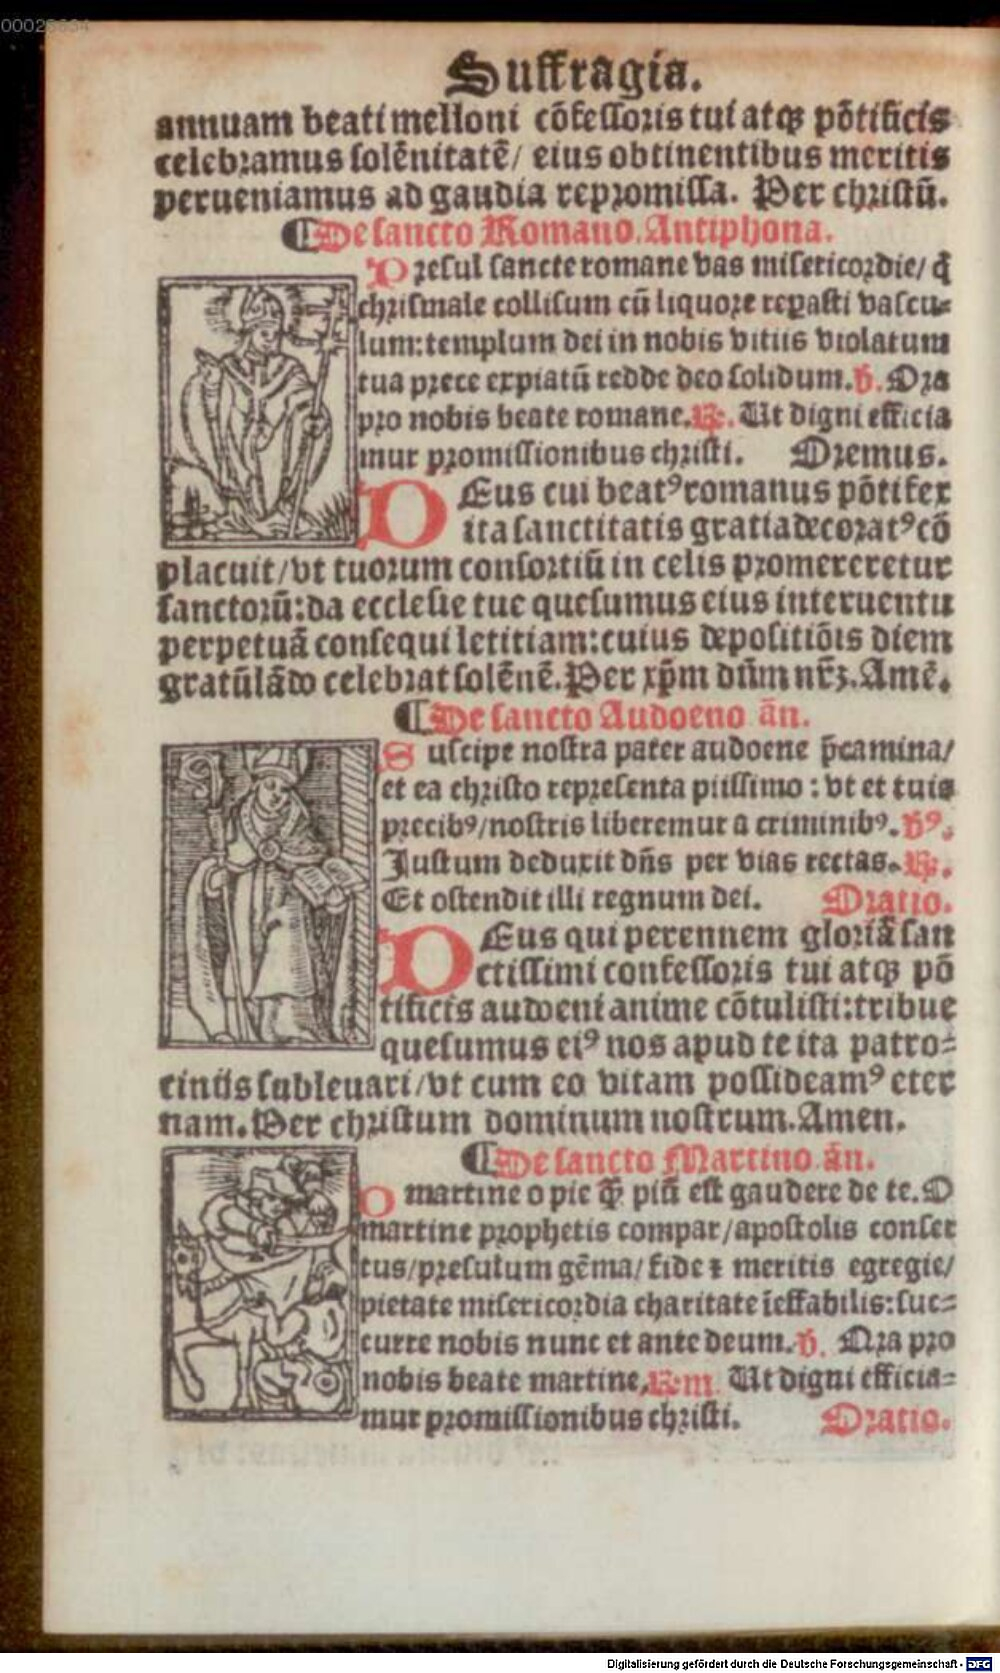 00025654
Suffragia.
annuam beati melloni cōfessoris tui atqꝫ pōtificis
celebramus solēnitatē/ eius obtinentibus meritis
perueniamus ad gaudia repromissa. Per christū.
¶De sancto Romano. Antiphona.
Presul sancte romane vas misericordie/ q̄
chrismale collisum cū liquore repasti vascu-
lum: templum dei in nobis vitiis violatum
tua prece expiatū redde deo solidum. ℣. Ora
pro nobis beate romane. ℟. Ut digni efficia
mur promissionibus christi. Oremus.
DEus cui beatꝰ romanus pōtifex
ita sanctitatis gratia decoratꝰ cō
placuit/ vt tuorum consortiū in celis promereretur
sanctorū: da ecclesie tue quesumus eius interuentu
perpetuā consequi letitiam: cuius depositiōis diem
gratūlādo celebrat solēnē. Per xp̄m dn̄m nr̄ꝫ. Amē.
¶De sancto Audoeno an̄.
Suscipe nostra pater audoene p̄camina/
et ea christo representa piissimo: vt et tuis
precibꝰ/ nostris liberemur a criminibꝰ. ℣ꝰ.
Justum deduxit dn̄s per vias rectas. ℟.
Et ostendit illi regnum dei. Oratio.
DEus qui perennem gloriā san
ctissimi confessoris tui atqꝫ pō
tificis audoeni anime cōtulisti: tribue
quesumus eiꝰ nos apud te ita patro-
ciniis subleuari/ vt cum eo vitam possideamꝰ eter
nam. Per christum dominum nostrum. Amen.
¶De sancto Martino. an̄.
O martine o pie q̄ꝫ piū est gaudere de te. O
martine prophetis compar/ apostolis conser
tus/ presulum gēma/ fide ⁊ meritis egregie/
pietate misericordia charitate īeffabilis: suc-
curre nobis nunc et ante deum. ℣. Ora pro
nobis beate martine. ℟m. Ut digni efficia-
mur promissionibus christi. Oratio.
Digitalisierung gefördert durch die Deutsche Forschungsgemeinschaft - DFG